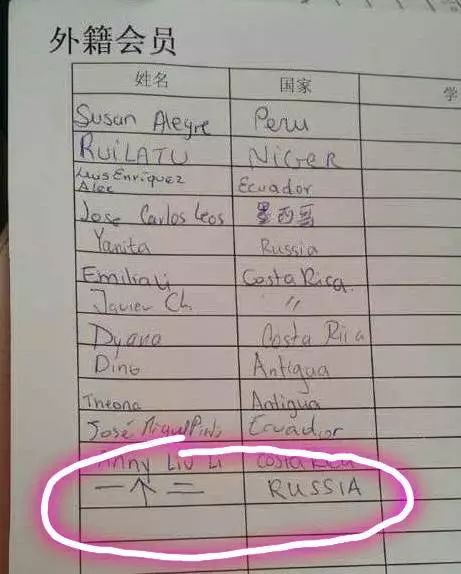 外籍会员
姓名 国家 学
Susan Alegre Peru
RUiLATU NiGER
Luis Enriquez Ecuador
Alec
Jose Carlos Leos 墨西哥
Yanita Russia
Emilia Li Costa Rica.
Javier Ch. "
Dyana Costa Rica
Dino Antigua
Theona Antigua
José Ecuador
Anny Liu Li Costa Rica
一个二 RUSSIA